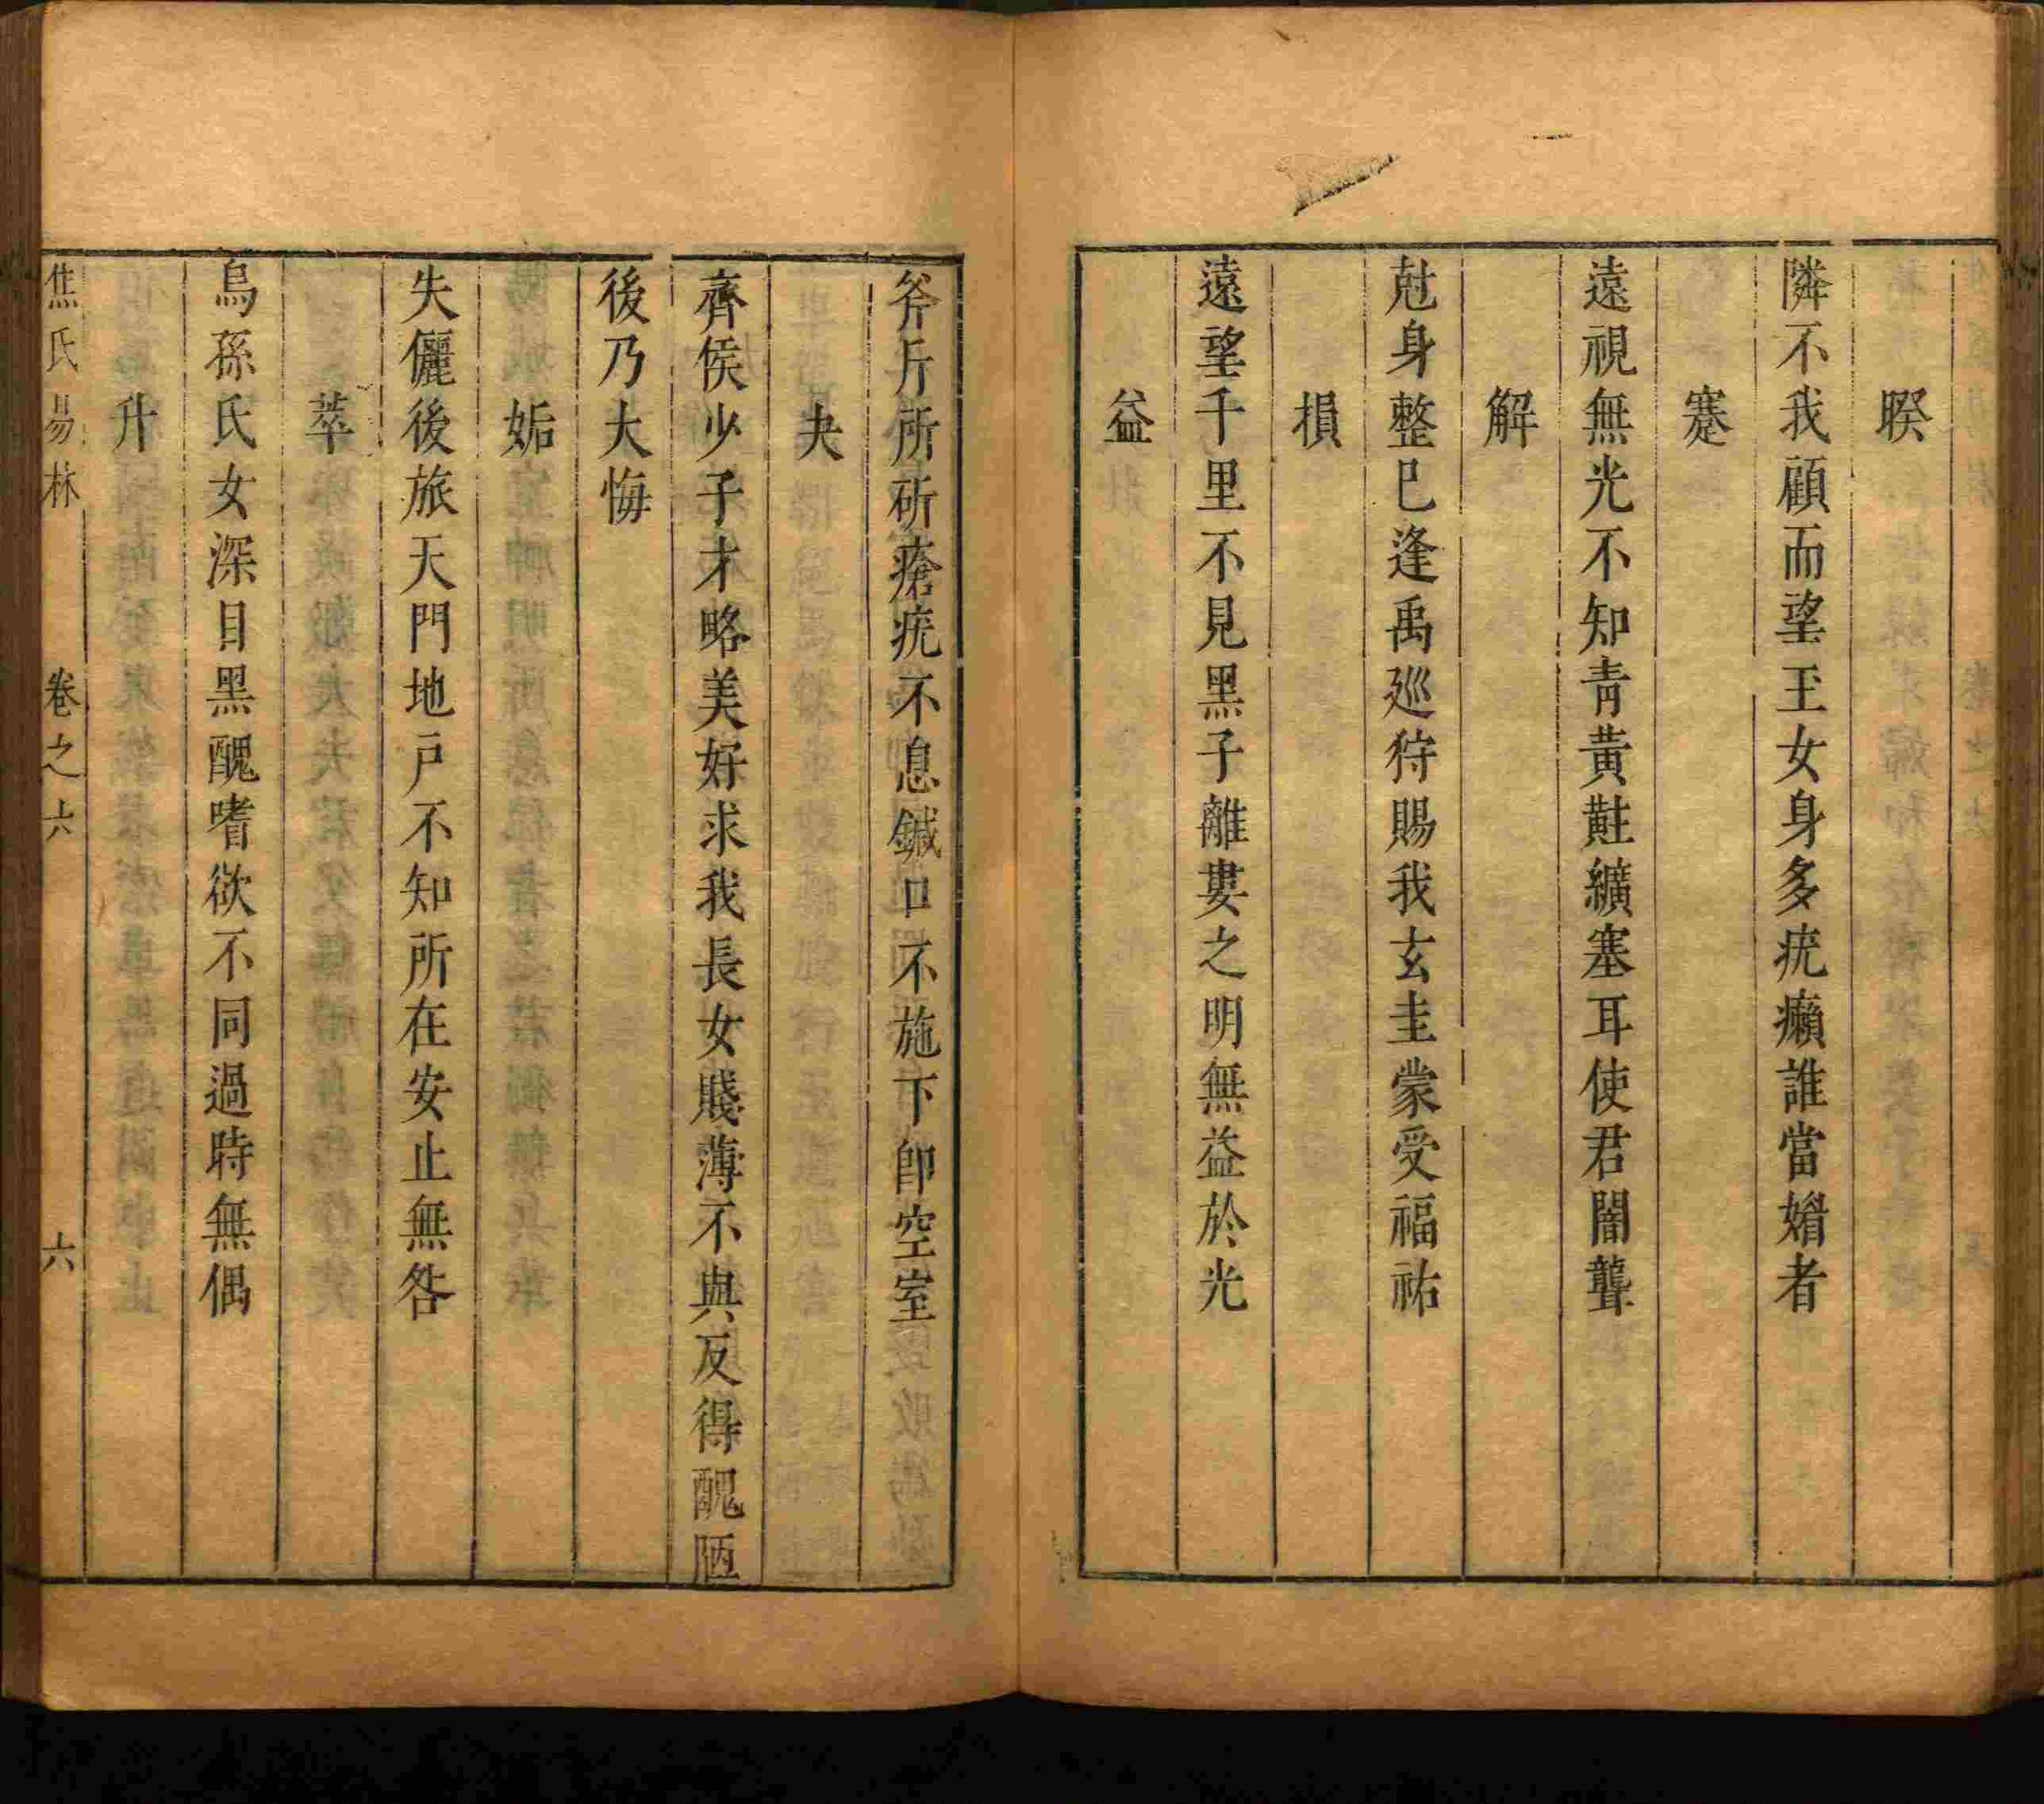 睽
隣不我顧而望玉女身多疣癩誰當婚者
蹇
遠視無光不知青黃黈纊塞耳使君闇聾
解
尅身整巳逢禹廵狩賜我玄圭蒙受福祐
損
遠望千里不見黑子離婁之明無益於光
益
斧斤所斫瘡疣不息鍼口不施下即空室
夬
齊侯少子才略美好求我長女賤薄不與反得醜陋
後乃大悔
姤
失儷後旅天門地戸不知所在安止無咎
萃
烏孫氏女深目黑醜嗜欲不同過時無偶
升
焦氏易林 卷之六 六